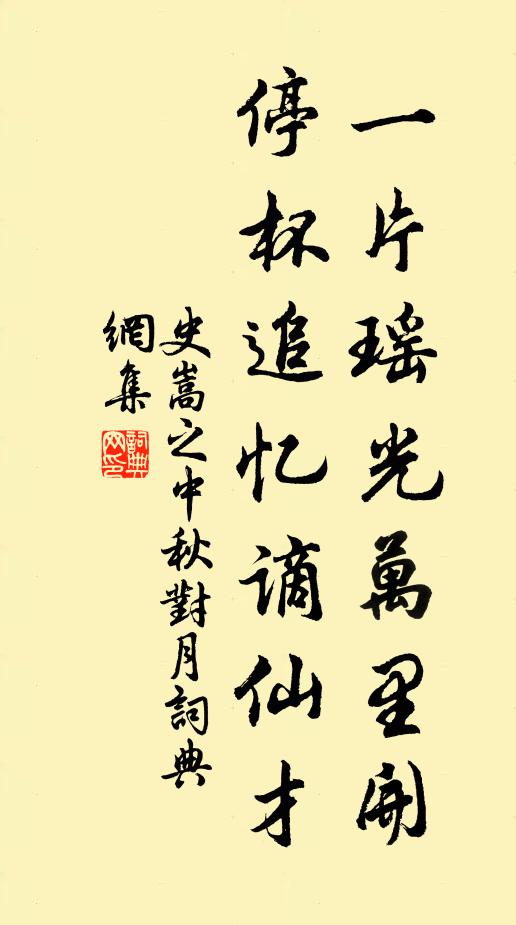 一片瑶光萬里開
停杯追忆謫仙才
史嵩之中秋對月詞典
網集
詞典
网印